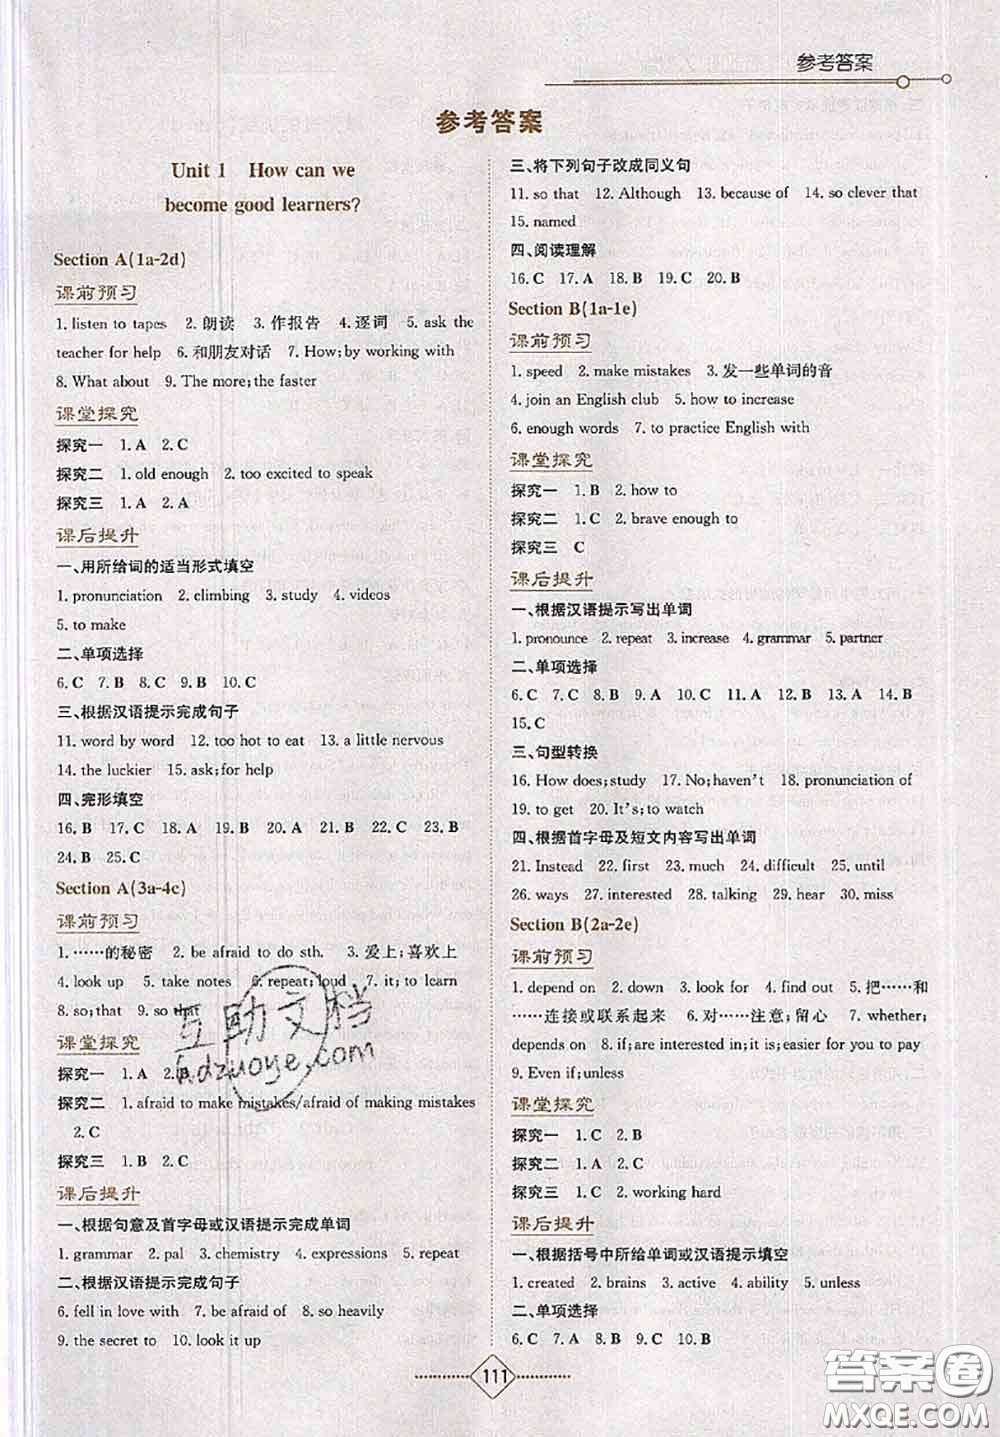 参考答案
参考答案
Unit 1 How can we
become good learners?
Section A(1a-2d)
课前预习
1. listen to tapes 2. 朗读 3. 作报告 4. 逐词 5. ask the
teacher for help 6. 和朋友对话 7. How; by working with
8. What about 9. The more; the faster
课堂探究
探究一 1. A 2. C
探究二 1. old enough 2. too excited to speak
探究三 1. A 2. A
课后提升
一、用所给词的适当形式填空
1. pronunciation 2. climbing 3. study 4. videos
5. to make
二、单项选择
6. C 7. B 8. C 9. B 10. C
三、根据汉语提示完成句子
11. word by word 12. too hot to eat 13. a little nervous
14. the luckier 15. ask; for help
四、完形填空
16. B 17. C 18. A 19. B 20. A 21. B 22. C 23. B
24. B 25. C
Section A(3a-4c)
课前预习
1. ……的秘密 2. be afraid to do sth. 3. 爱上;喜欢上
4. look up 5. take notes 6. repeat; loud 7. it; to learn
8. so; that 9. so that
课堂探究
探究一 1. A 2. B
探究二 1. afraid to make mistakes/afraid of making mistakes
2. C
探究三 1. B 2. C
课后提升
一、根据句意及首字母或汉语提示完成单词
1. grammar 2. pal 3. chemistry 4. expressions 5. repeat
二、根据汉语提示完成句子
6. fell in love with 7. be afraid of 8. so heavily
9. the secret to 10. look it up
三、将下列句子改成同义句
11. so that 12. Although 13. because of 14. so clever that
15. named
四、阅读理解
16. C 17. A 18. B 19. C 20. B
Section B(1a-1e)
课前预习
1. speed 2. make mistakes 3. 发一些单词的音
4. join an English club 5. how to increase
6. enough words 7. to practice English with
课堂探究
探究一 1. B 2. how to
探究二 1. C 2. brave enough to
探究三 C
课后提升
一、根据汉语提示写出单词
1. pronounce 2. repeat 3. increase 4. grammar 5. partner
二、单项选择
6. C 7. C 8. B 9. A 10. C 11. A 12. B 13. A 14. B
15. C
三、句型转换
16. How does; study 17. No; haven't 18. pronunciation of
19. to get 20. It's; to watch
四、根据首字母及短文内容写出单词
21. Instead 22. first 23. much 24. difficult 25. until
26. ways 27. interested 28. talking 29. hear 30. miss
Section B(2a-2e)
课前预习
1. depend on 2. down 3. look for 4. find out 5. 把……和
……连接或联系起来 6. 对……注意;留心 7. whether;
depends on 8. if; are interested in; it; easier for you to pay
9. Even if; unless
课堂探究
探究一 1. C 2. B
探究二 1. A 2. C
探究三 1. C 2. working hard
课后提升
一、根据括号中所给单词或汉语提示填空
1. created 2. brains 3. active 4. ability 5. unless
二、单项选择
6. C 7. A 8. B 9. C 10. B
111
互助文档
hdzuoye.com
答案圈
MXQE.COM